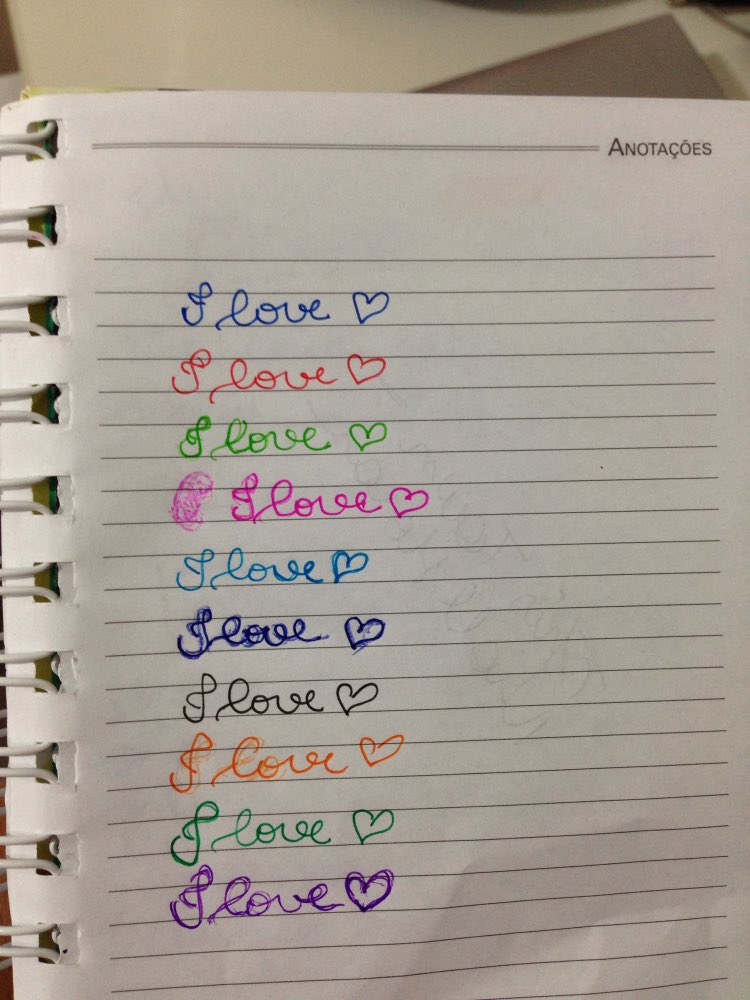 ANOTAÇÕES
I love ♡
I love ♡
I love ♡
I love ♡
I love ♡
I love ♡
I love ♡
I love ♡
I love ♡
I love ♡